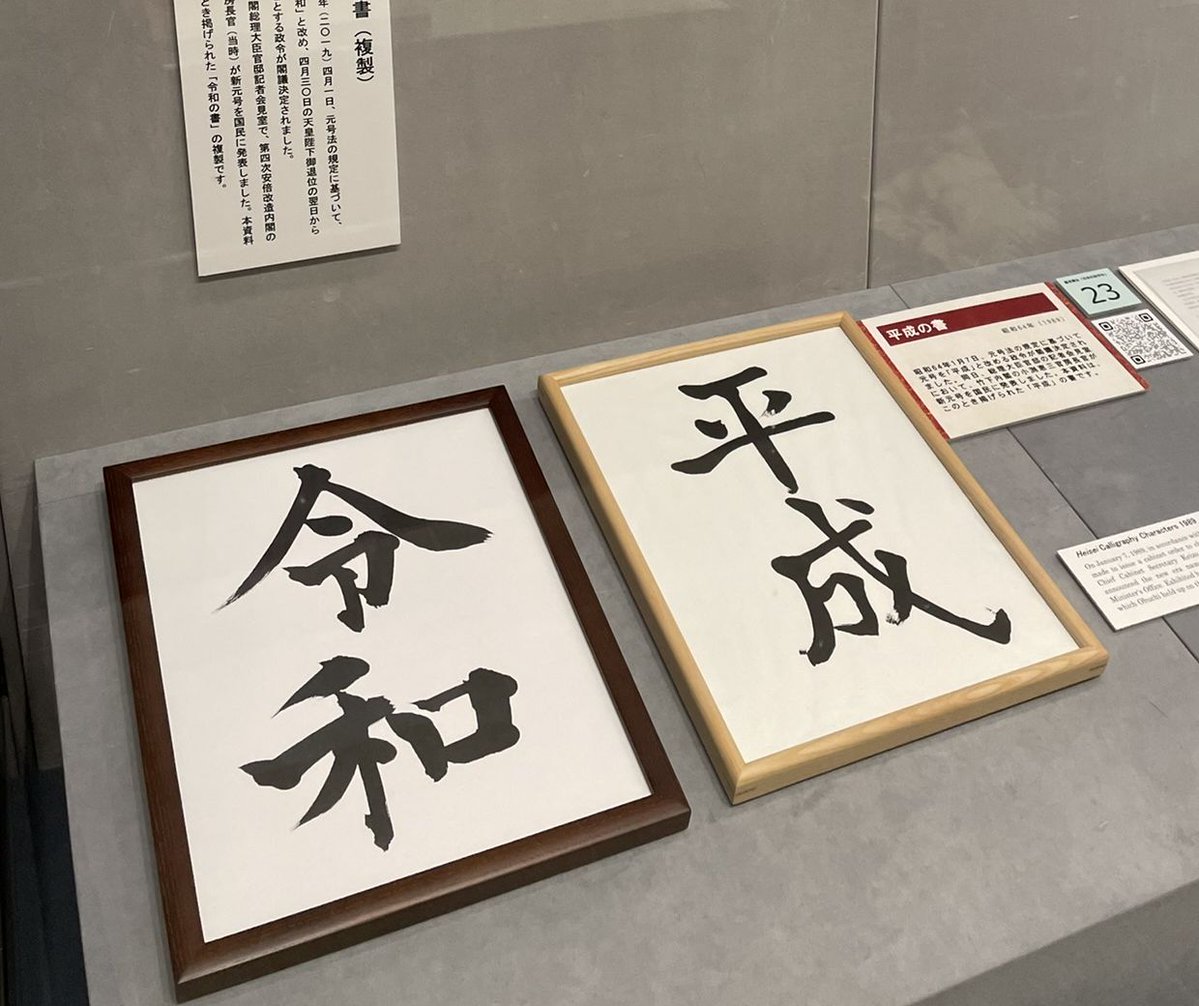 書（複製）
年（二〇一九）四月一日、元号法の規定に基づいて、
和」と改め、四月三〇日の天皇陛下御退位の翌日から
とする政令が閣議決定されました。
閣総理大臣官邸記者会見室で、第四次安倍改造内閣の
房長官（当時）が新元号を国民に発表しました。本資料
とき掲げられた「令和の書」の複製です。
令和
平成
平成の書
昭和64年（1989）
昭和64年1月7日、元号法の規定に基づいて
元号を「平成」と改める政令が閣議決定され
ました。同日、総理大臣官邸の記者会見室
において、竹下内閣の小渕恵三官房長官が
新元号を国民に発表しました。本資料は、
このとき掲げられた「平成」の書です。
23
Heisei Calligraphy Characters 1989
On January 7, 1989, in accordance
made to issue a cabinet order to
Chief Cabinet Secretary
announced the new era
Minister's Office Exhibited
which Obuchi held up on